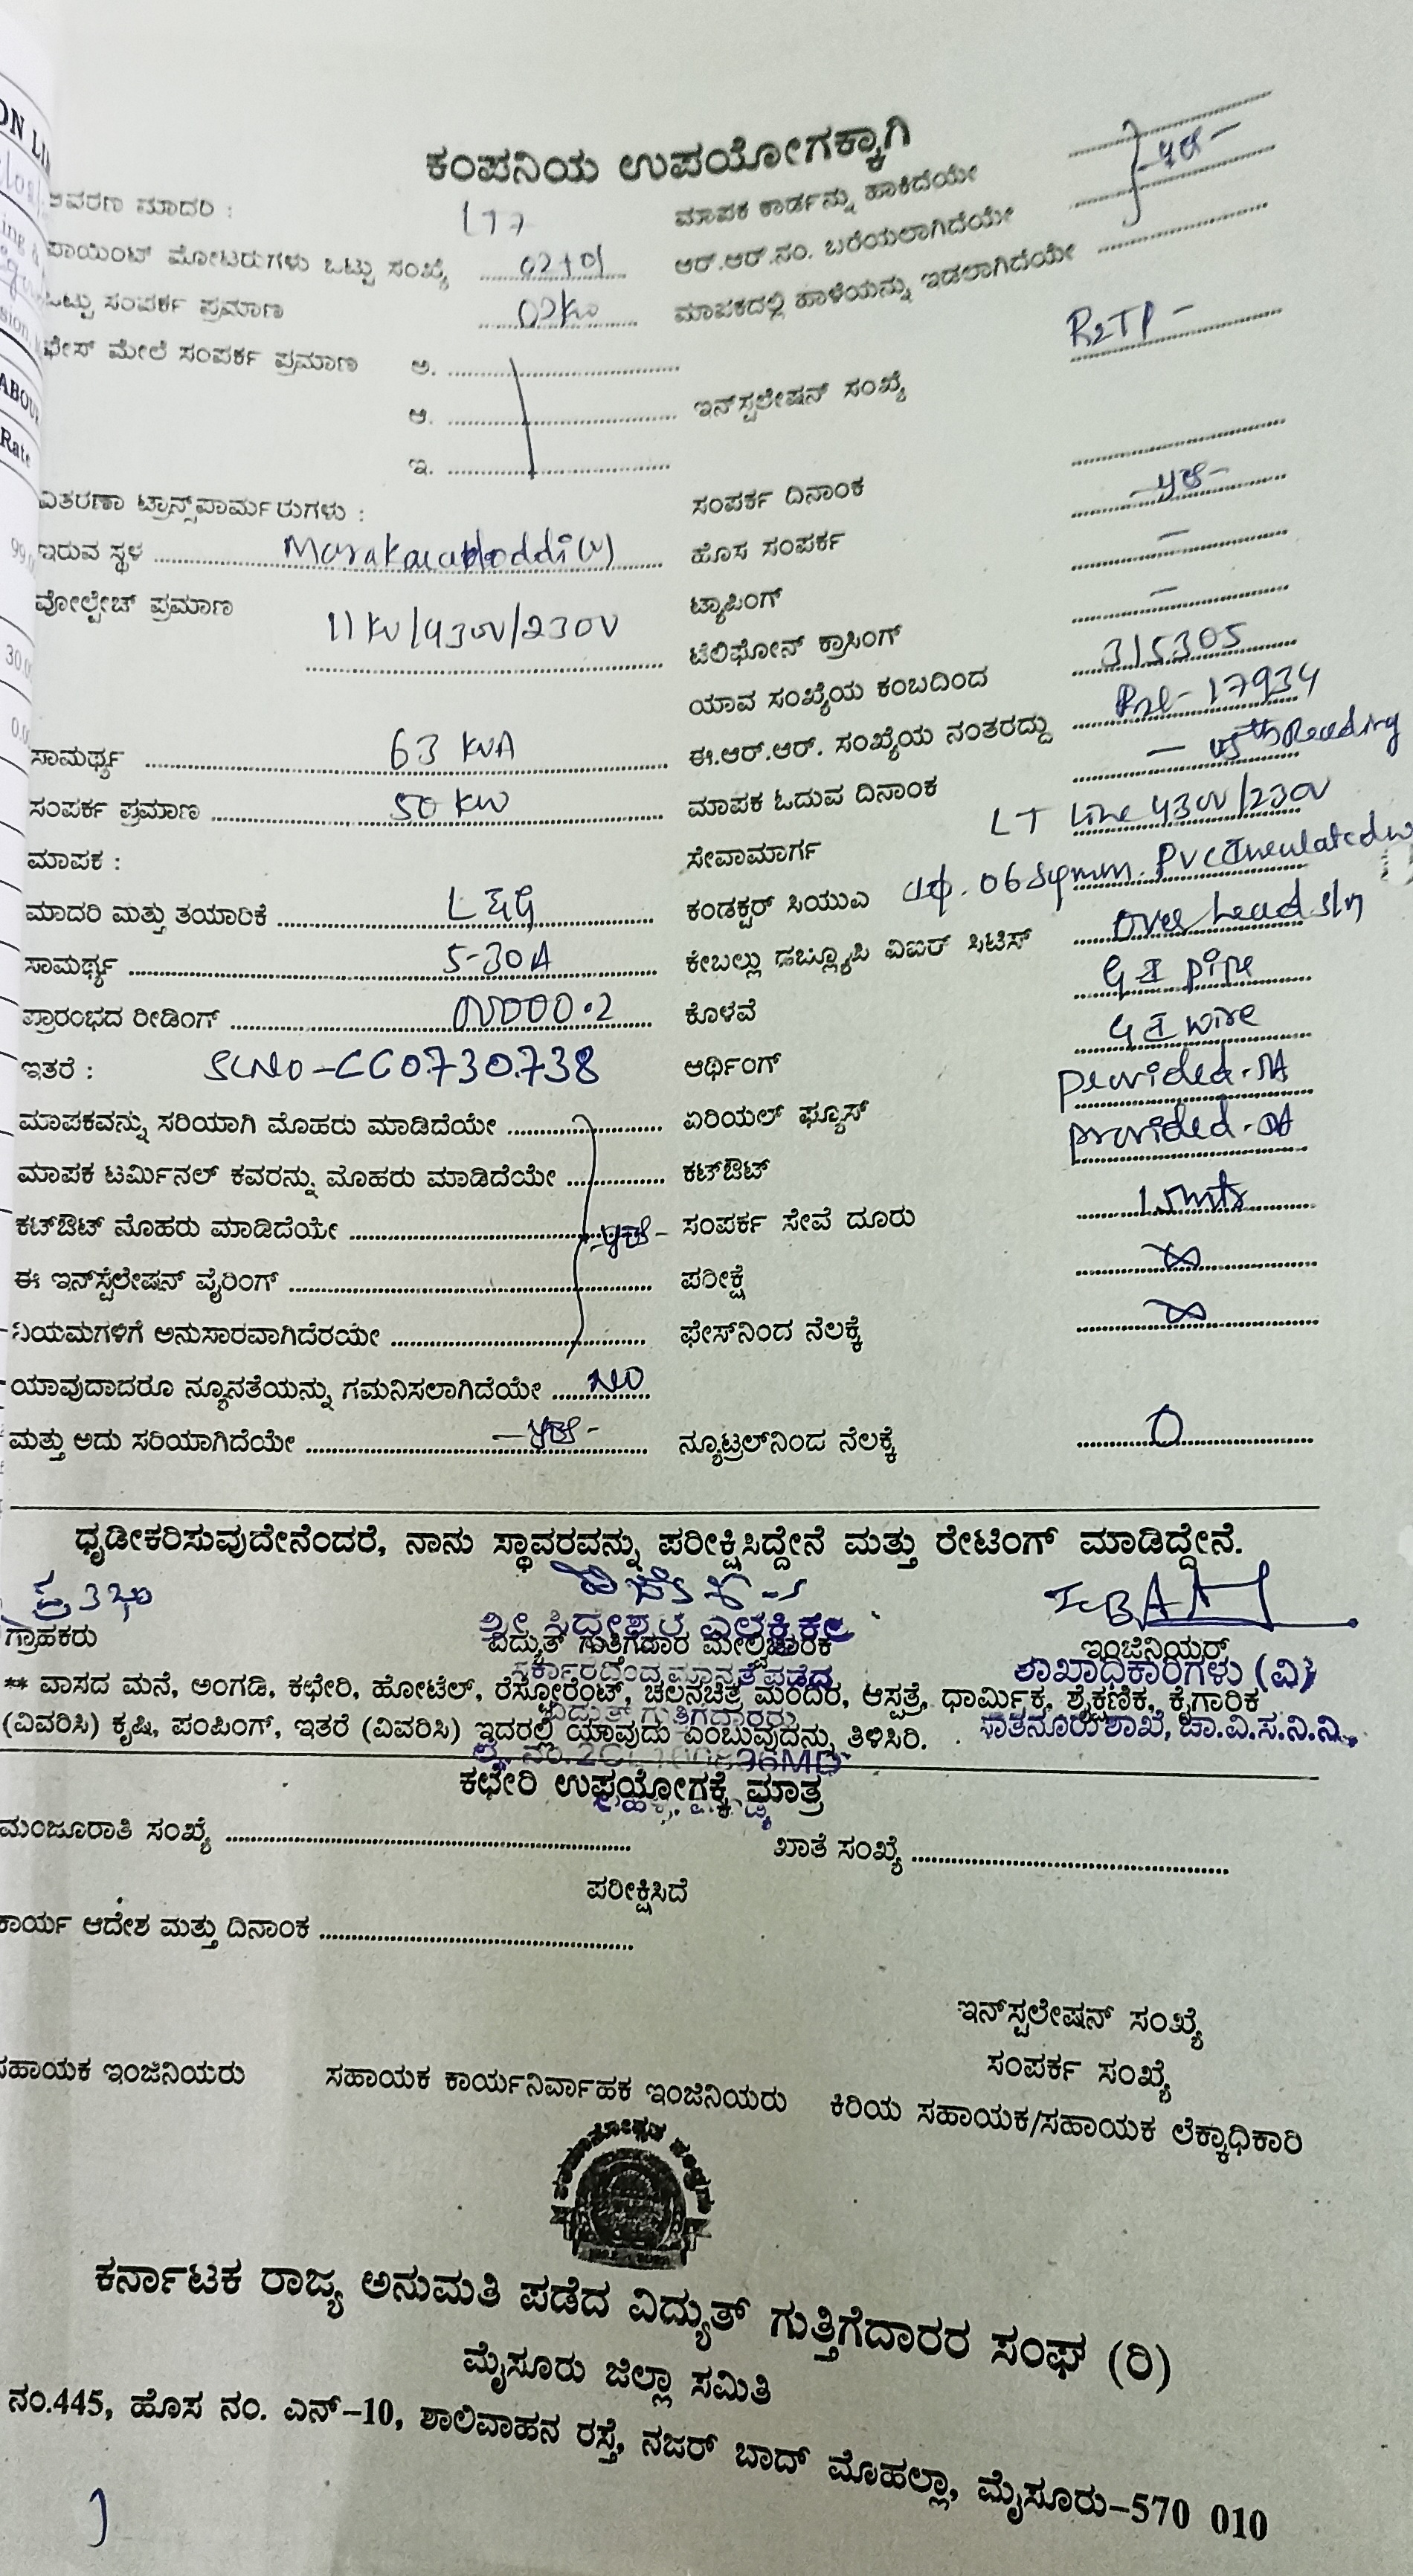 ಕಂಪನಿಯ ಉಪಯೋಗಕ್ಕಾಗಿ
ಆವರಣ ಮಾದರಿ : LT7 ಮಾಪಕ ಕಾರ್ಡನ್ನು ಹಾಕಿದೆಯೇ
ಪಾಯಿಂಟ್ ಮೋಟರುಗಳು ಒಟ್ಟು ಸಂಖ್ಯೆ 02+01 ಆರ್.ಆರ್.ನಂ. ಬರೆಯಲಾಗಿದೆಯೇ
ಒಟ್ಟು ಸಂಪರ್ಕ ಪ್ರಮಾಣ 02kw ಮಾಪಕದಲ್ಲಿ ಹಾಳೆಯನ್ನು ಇಡಲಾಗಿದೆಯೇ
ಫೇಸ್ ಮೇಲೆ ಸಂಪರ್ಕ ಪ್ರಮಾಣ ಅ.
ಆ. ಇನ್‌ಸ್ಟಲೇಷನ್ ಸಂಖ್ಯೆ
ಇ.
ವಿತರಣಾ ಟ್ರಾನ್ಸ್‌ಪಾರ್ಮರುಗಳು : ಸಂಪರ್ಕ ದಿನಾಂಕ
ಇರುವ ಸ್ಥಳ ಹೊಸ ಸಂಪರ್ಕ
ವೋಲ್ಟೇಚ್ ಪ್ರಮಾಣ 11KV/430V/230V ಟ್ಯಾಪಿಂಗ್ –
ಟೆಲಿಫೋನ್ ಕ್ರಾಸಿಂಗ್ –
ಯಾವ ಸಂಖ್ಯೆಯ ಕಂಬದಿಂದ 315305
ಸಾಮರ್ಥ್ಯ 63 KVA ಈ.ಆರ್.ಆರ್. ಸಂಖ್ಯೆಯ ನಂತರದ್ದು 17934
ಸಂಪರ್ಕ ಪ್ರಮಾಣ 50 KW ಮಾಪಕ ಓದುವ ದಿನಾಂಕ – Reading
ಮಾಪಕ : ಸೇವಾಮಾರ್ಗ LT Line 430V/230V
ಮಾದರಿ ಮತ್ತು ತಯಾರಿಕೆ L&G ಕಂಡಕ್ಟರ್ ಸಿಯುಎ 06 Sqmm. PVC
ಸಾಮರ್ಥ್ಯ 5-30A ಕೇಬಲ್ಲು ಡಬ್ಲ್ಯೂಪಿ ವಿಐರ್ ಸಿಟಿಸ್ Over head
ಪ್ರಾರಂಭದ ರೀಡಿಂಗ್ 00000.2 ಕೊಳವೆ GI pipe
ಇತರೆ : SLNO-CC0730738 ಆರ್ಥಿಂಗ್ GI wire
ಮಾಪಕವನ್ನು ಸರಿಯಾಗಿ ಮೊಹರು ಮಾಡಿದೆಯೇ ಏರಿಯಲ್ ಫ್ಯೂಸ್ provided
ಮಾಪಕ ಟರ್ಮಿನಲ್ ಕವರನ್ನು ಮೊಹರು ಮಾಡಿದೆಯೇ ಕಟ್‌ಔಟ್ provided
ಕಟ್‌ಔಟ್ ಮೊಹರು ಮಾಡಿದೆಯೇ ಸಂಪರ್ಕ ಸೇವೆ ದೂರು 15mts
ಈ ಇನ್‌ಸ್ಟೆಲೇಷನ್ ವೈರಿಂಗ್ ಪರೀಕ್ಷೆ ∞
ನಿಯಮಗಳಿಗೆ ಅನುಸಾರವಾಗಿದೆರಯೇ ಫೇಸ್‌ನಿಂದ ನೆಲಕ್ಕೆ ∞
ಯಾವುದಾದರೂ ನ್ಯೂನತೆಯನ್ನು ಗಮನಿಸಲಾಗಿದೆಯೇ NO
ಮತ್ತು ಅದು ಸರಿಯಾಗಿದೆಯೇ ನ್ಯೂಟ್ರಲ್‌ನಿಂದ ನೆಲಕ್ಕೆ 0
ಧೃಡೀಕರಿಸುವುದೇನೆಂದರೆ, ನಾನು ಸ್ಥಾವರವನ್ನು ಪರೀಕ್ಷಿಸಿದ್ದೇನೆ ಮತ್ತು ರೇಟಿಂಗ್ ಮಾಡಿದ್ದೇನೆ.
ಗ್ರಾಹಕರು ವಿದ್ಯುತ್ ಗುತ್ತಿಗೆದಾರ ಮೇಲ್ವಿಚಾರಕ ಇಂಜಿನಿಯರ್
ಶಾಖಾಧಿಕಾರಿಗಳು (ವಿ)
** ವಾಸದ ಮನೆ, ಅಂಗಡಿ, ಕಛೇರಿ, ಹೋಟೆಲ್, ರೆಸ್ಟೋರೆಂಟ್, ಚಲನಚಿತ್ರ ಮಂದಿರ, ಆಸ್ಪತ್ರೆ, ಧಾರ್ಮಿಕ, ಶೈಕ್ಷಣಿಕ, ಕೈಗಾರಿಕ
(ವಿವರಿಸಿ) ಕೃಷಿ, ಪಂಪಿಂಗ್, ಇತರೆ (ವಿವರಿಸಿ) ಇದರಲ್ಲಿ ಯಾವುದು ಎಂಬುವುದನ್ನು ತಿಳಿಸಿರಿ.
ಸಾತನೂರು ಶಾಖೆ, ಚಾ.ವಿ.ಸ.ನಿ.ನಿ.
ಕಛೇರಿ ಉಪಯೋಗಕ್ಕೆ ಮಾತ್ರ
ಮಂಜೂರಾತಿ ಸಂಖ್ಯೆ ಖಾತೆ ಸಂಖ್ಯೆ
ಪರೀಕ್ಷಿಸಿದೆ
ಕಾರ್ಯ ಆದೇಶ ಮತ್ತು ದಿನಾಂಕ
ಇನ್‌ಸ್ಟಲೇಷನ್ ಸಂಖ್ಯೆ
ಸಂಪರ್ಕ ಸಂಖ್ಯೆ
ಸಹಾಯಕ ಇಂಜಿನಿಯರು ಸಹಾಯಕ ಕಾರ್ಯನಿರ್ವಾಹಕ ಇಂಜಿನಿಯರು ಕಿರಿಯ ಸಹಾಯಕ/ಸಹಾಯಕ ಲೆಕ್ಕಾಧಿಕಾರಿ
ಕರ್ನಾಟಕ ರಾಜ್ಯ ಅನುಮತಿ ಪಡೆದ ವಿದ್ಯುತ್ ಗುತ್ತಿಗೆದಾರರ ಸಂಘ (ರಿ)
ಮೈಸೂರು ಜಿಲ್ಲಾ ಸಮಿತಿ
ನಂ.445, ಹೊಸ ನಂ. ಎನ್-10, ಶಾಲಿವಾಹನ ರಸ್ತೆ, ನಜರ್ ಬಾದ್ ಮೊಹಲ್ಲಾ, ಮೈಸೂರು-570 010